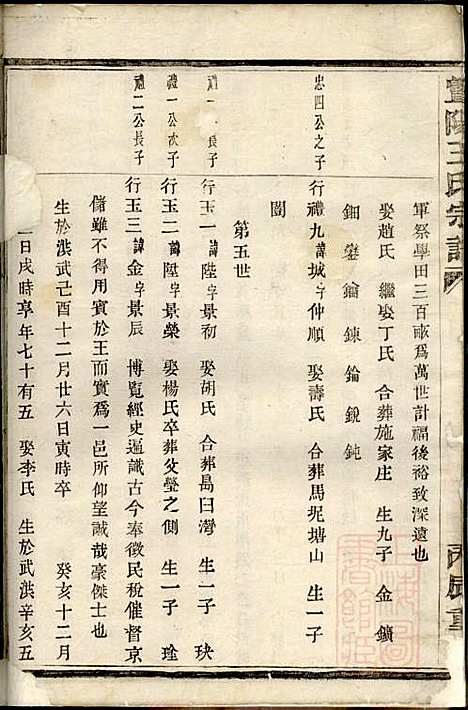 暨陽王氏宗譜
軍祭學田三百畝爲萬世計福後裕致深遠也
娶趙氏 繼娶丁氏 合葬施家庄 生九子 金 鑛
鈿 鑾 鎦 鍊 錀 鋭 鈍
忠四公之子 行禮九 諱城 字仲順 娶壽氏 合葬馬坭塘山 生一子
閏
第五世
禮一 長子 行玉一 諱陞 字景初 娶胡氏 合葬島臼灣 生一子 玦
禮一公次子 行玉二 諱陞 字景榮 娶楊氏卒葬父塋之側 生一子 琻
禮二公長子 行玉三 諱金 字景辰 博覽經史遍識古今奉徵民稅催督京
儲雖不得用賓於王而實爲一邑所仰望誠哉豪傑士也
生於洪武己酉十二月廿六日寅時卒 癸亥十二月
日戌時享年七十有五 娶李氏 生於武洪辛亥五